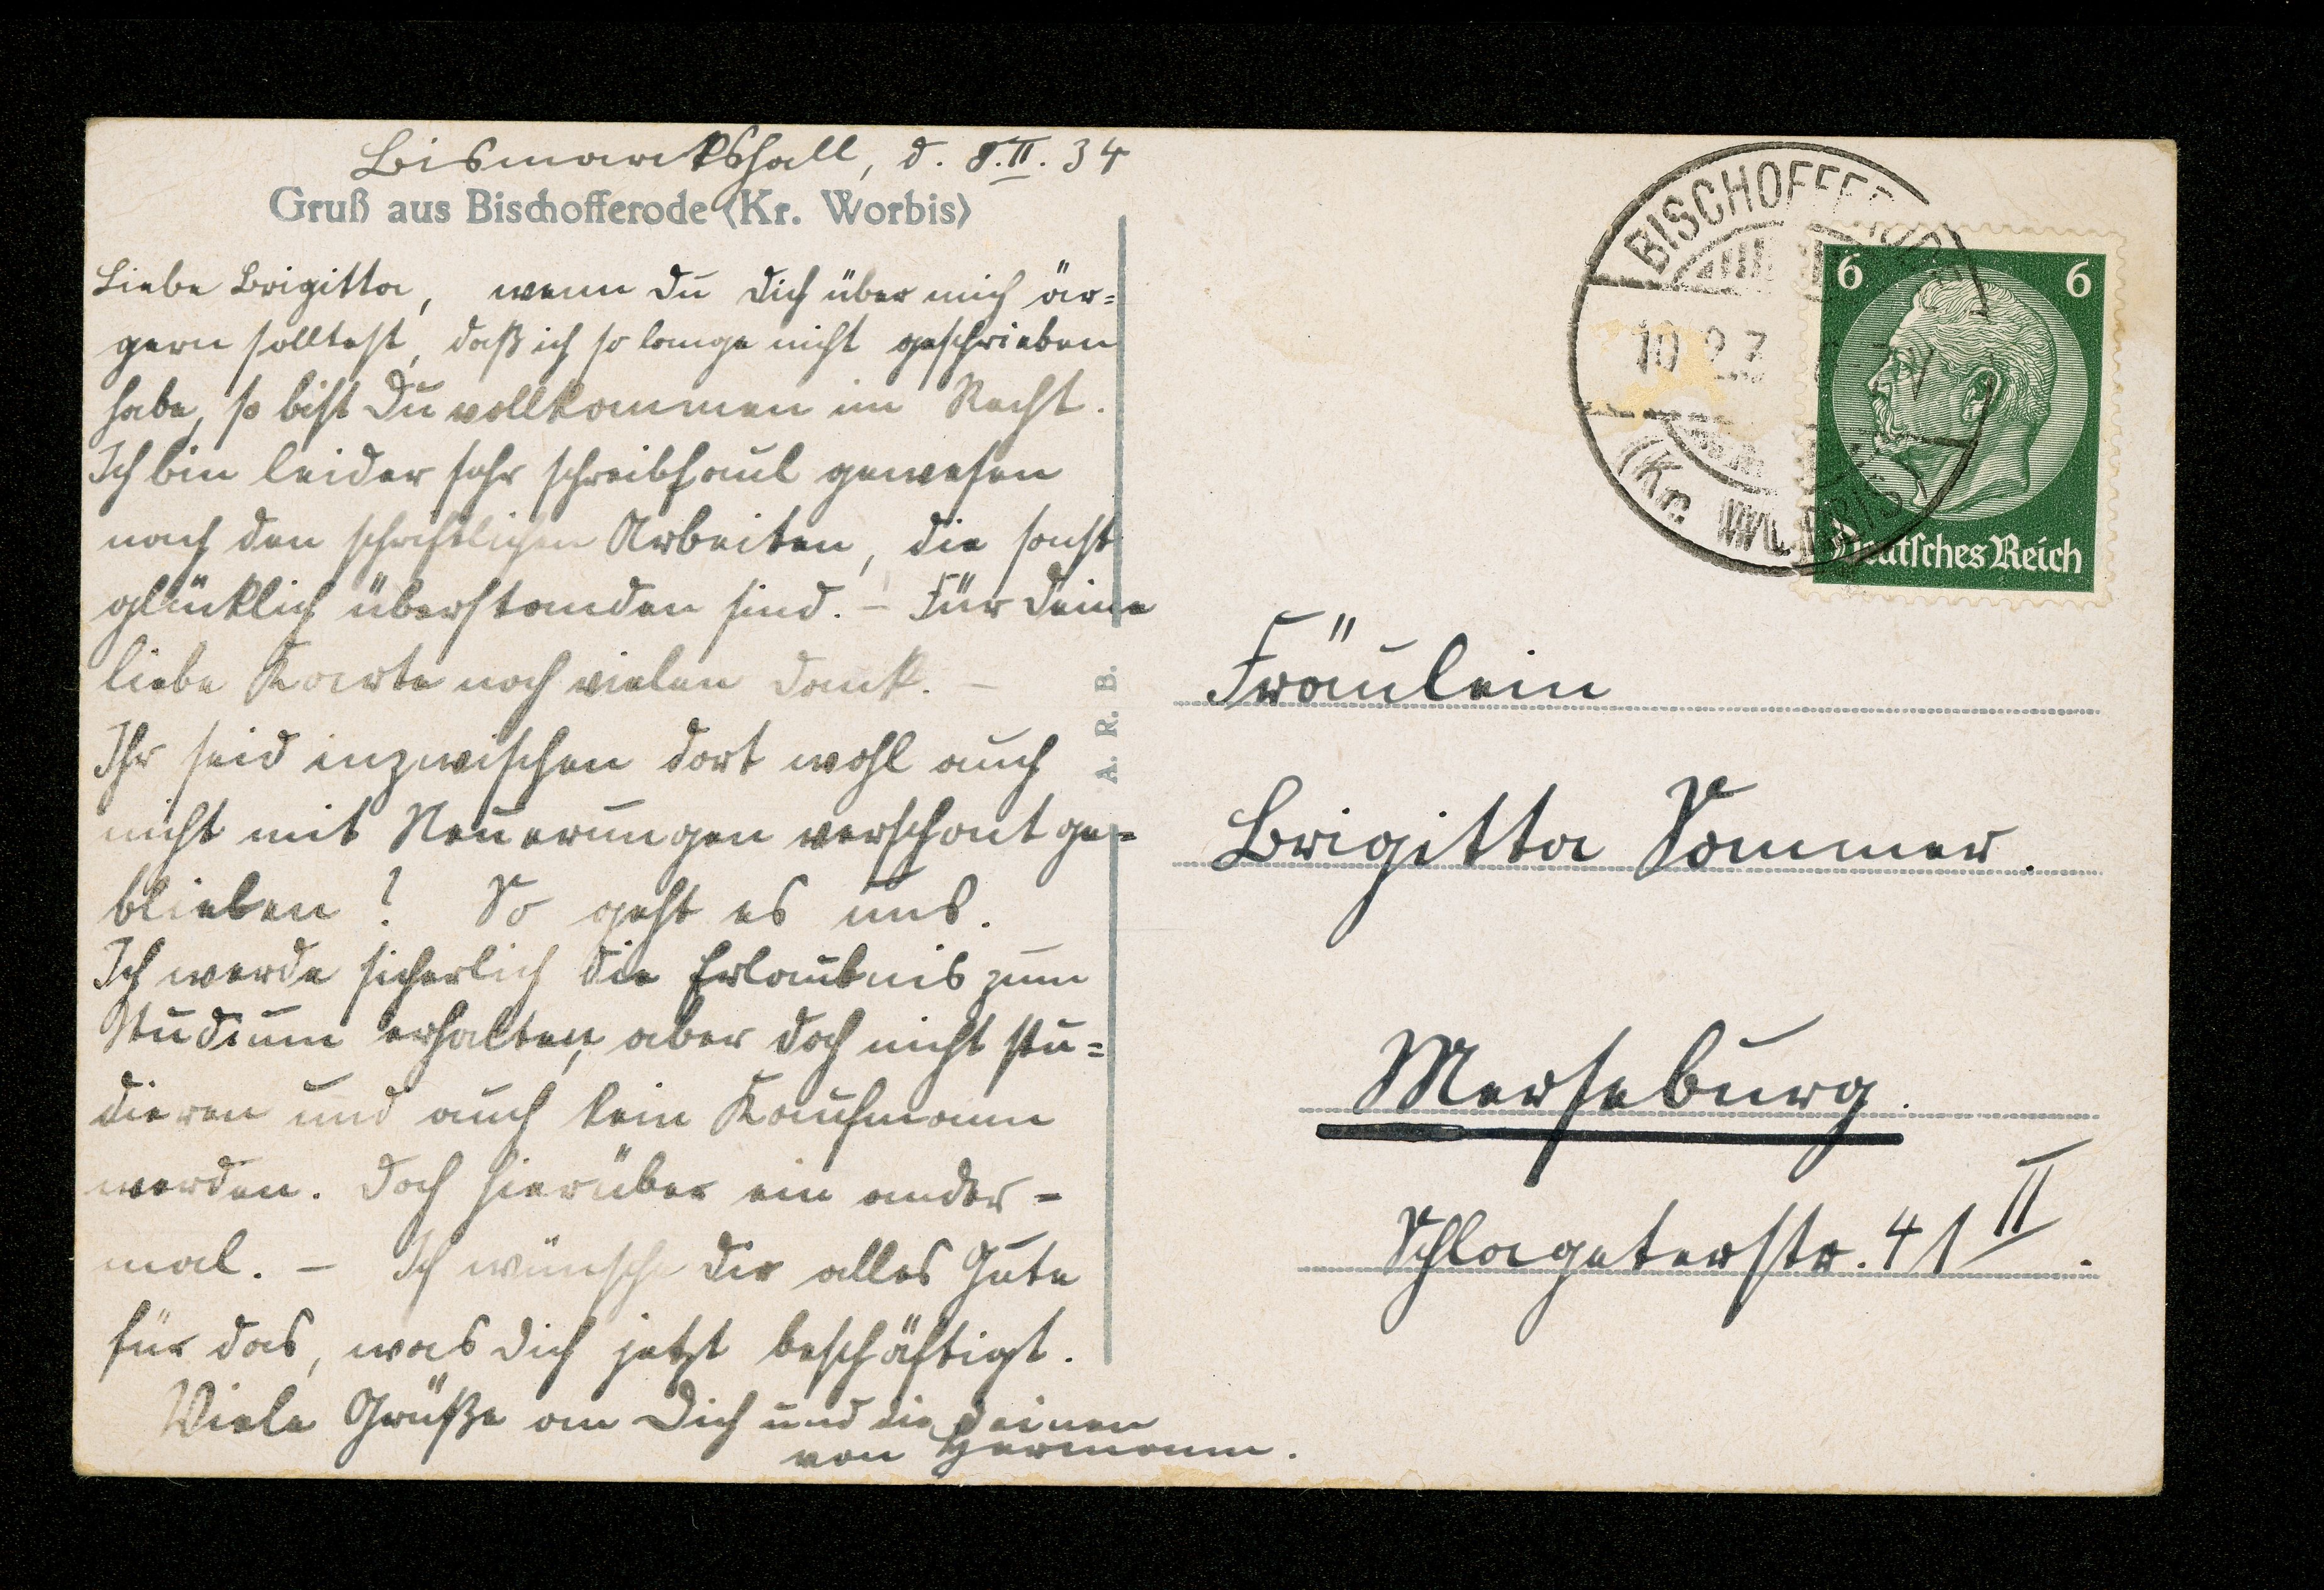 Bismarckshall, d. 8.II.34
Gruß aus Bischofferode (Kr. Worbis)
Liebe Brigitta, wenn Du Dich über mich är=
gern solltest, daß ich so lange nicht geschrieben
habe, so bist Du vollkommen im Recht.
Ich bin leider sehr schreibfaul gewesen
nach den schriftlichen Arbeiten, die sonst
glücklich überstanden sind. – Für Deine
liebe Karte noch vielen Dank. –
Ihr seid inzwischen dort wohl auch
nicht mit Neuerungen verschont ge=
blieben? So geht es uns.
Ich werde sicherlich die Erlaubnis zum
Studium erhalten, aber doch nicht stu=
dieren und auch kein Kaufmann
werden. Doch hierüber ein ander=
mal. – Ich wünsche Dir alles Gute
für das, was Dich jetzt beschäftigt.
Viele Grüße an Dich und die Deinen
von Hermann.
A. R. B.
BISCHOFFERODE
10.2.3
(Kr. WORBIS)
6 6
Deutsches Reich
Fräulein
Brigitta Sommer.
Merseburg.
Schlageterstr. 41 II.